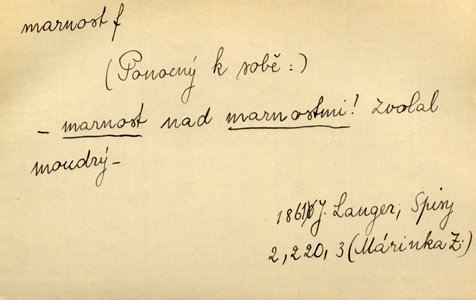 marnost f
(Ponocný k sobě:)
– marnost nad marnostmi! zvolal
moudrý –
1861 J. Langer, Spisy
2, 220, 3 (Márinka Z.)